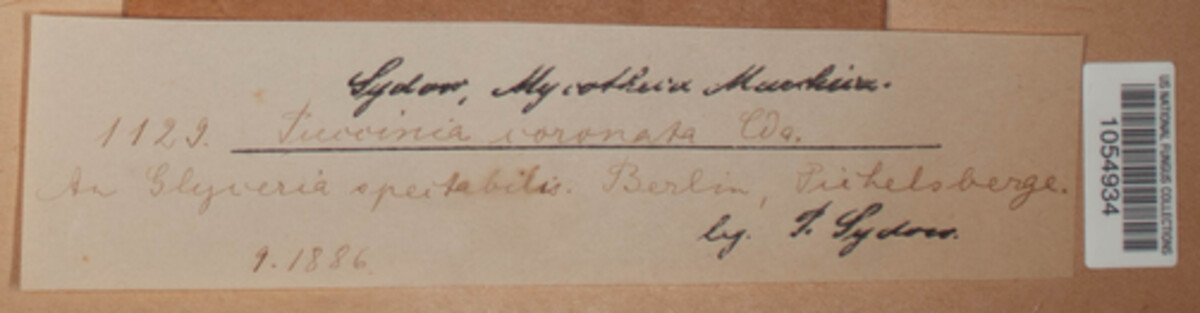 Sydow, Mycotheca Marchica.
1129. Puccinia coronata Cda.
An Glyceria spectabilis. Berlin, Pichelsberge.
leg. P. Sydow.
9.1886.
US NATIONAL FUNGUS COLLECTIONS
1054934